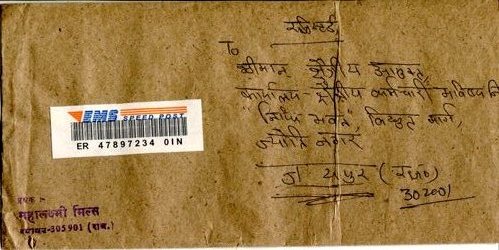 रजिस्टर्ड
To
श्रीमान क्षेत्रीय आयुक्त,
कार्यालय - क्षेत्रीय कर्मचारी भविष्य नि
निधि भवन, विद्युत मार्ग,
ज्योति नगर
जयपुर (राज०)
302001
EMS
SPEED POST
ER 47897234 0IN
प्रेषक :-
महालक्ष्मी मिल्स
ब्यावर-305901 (राज.)